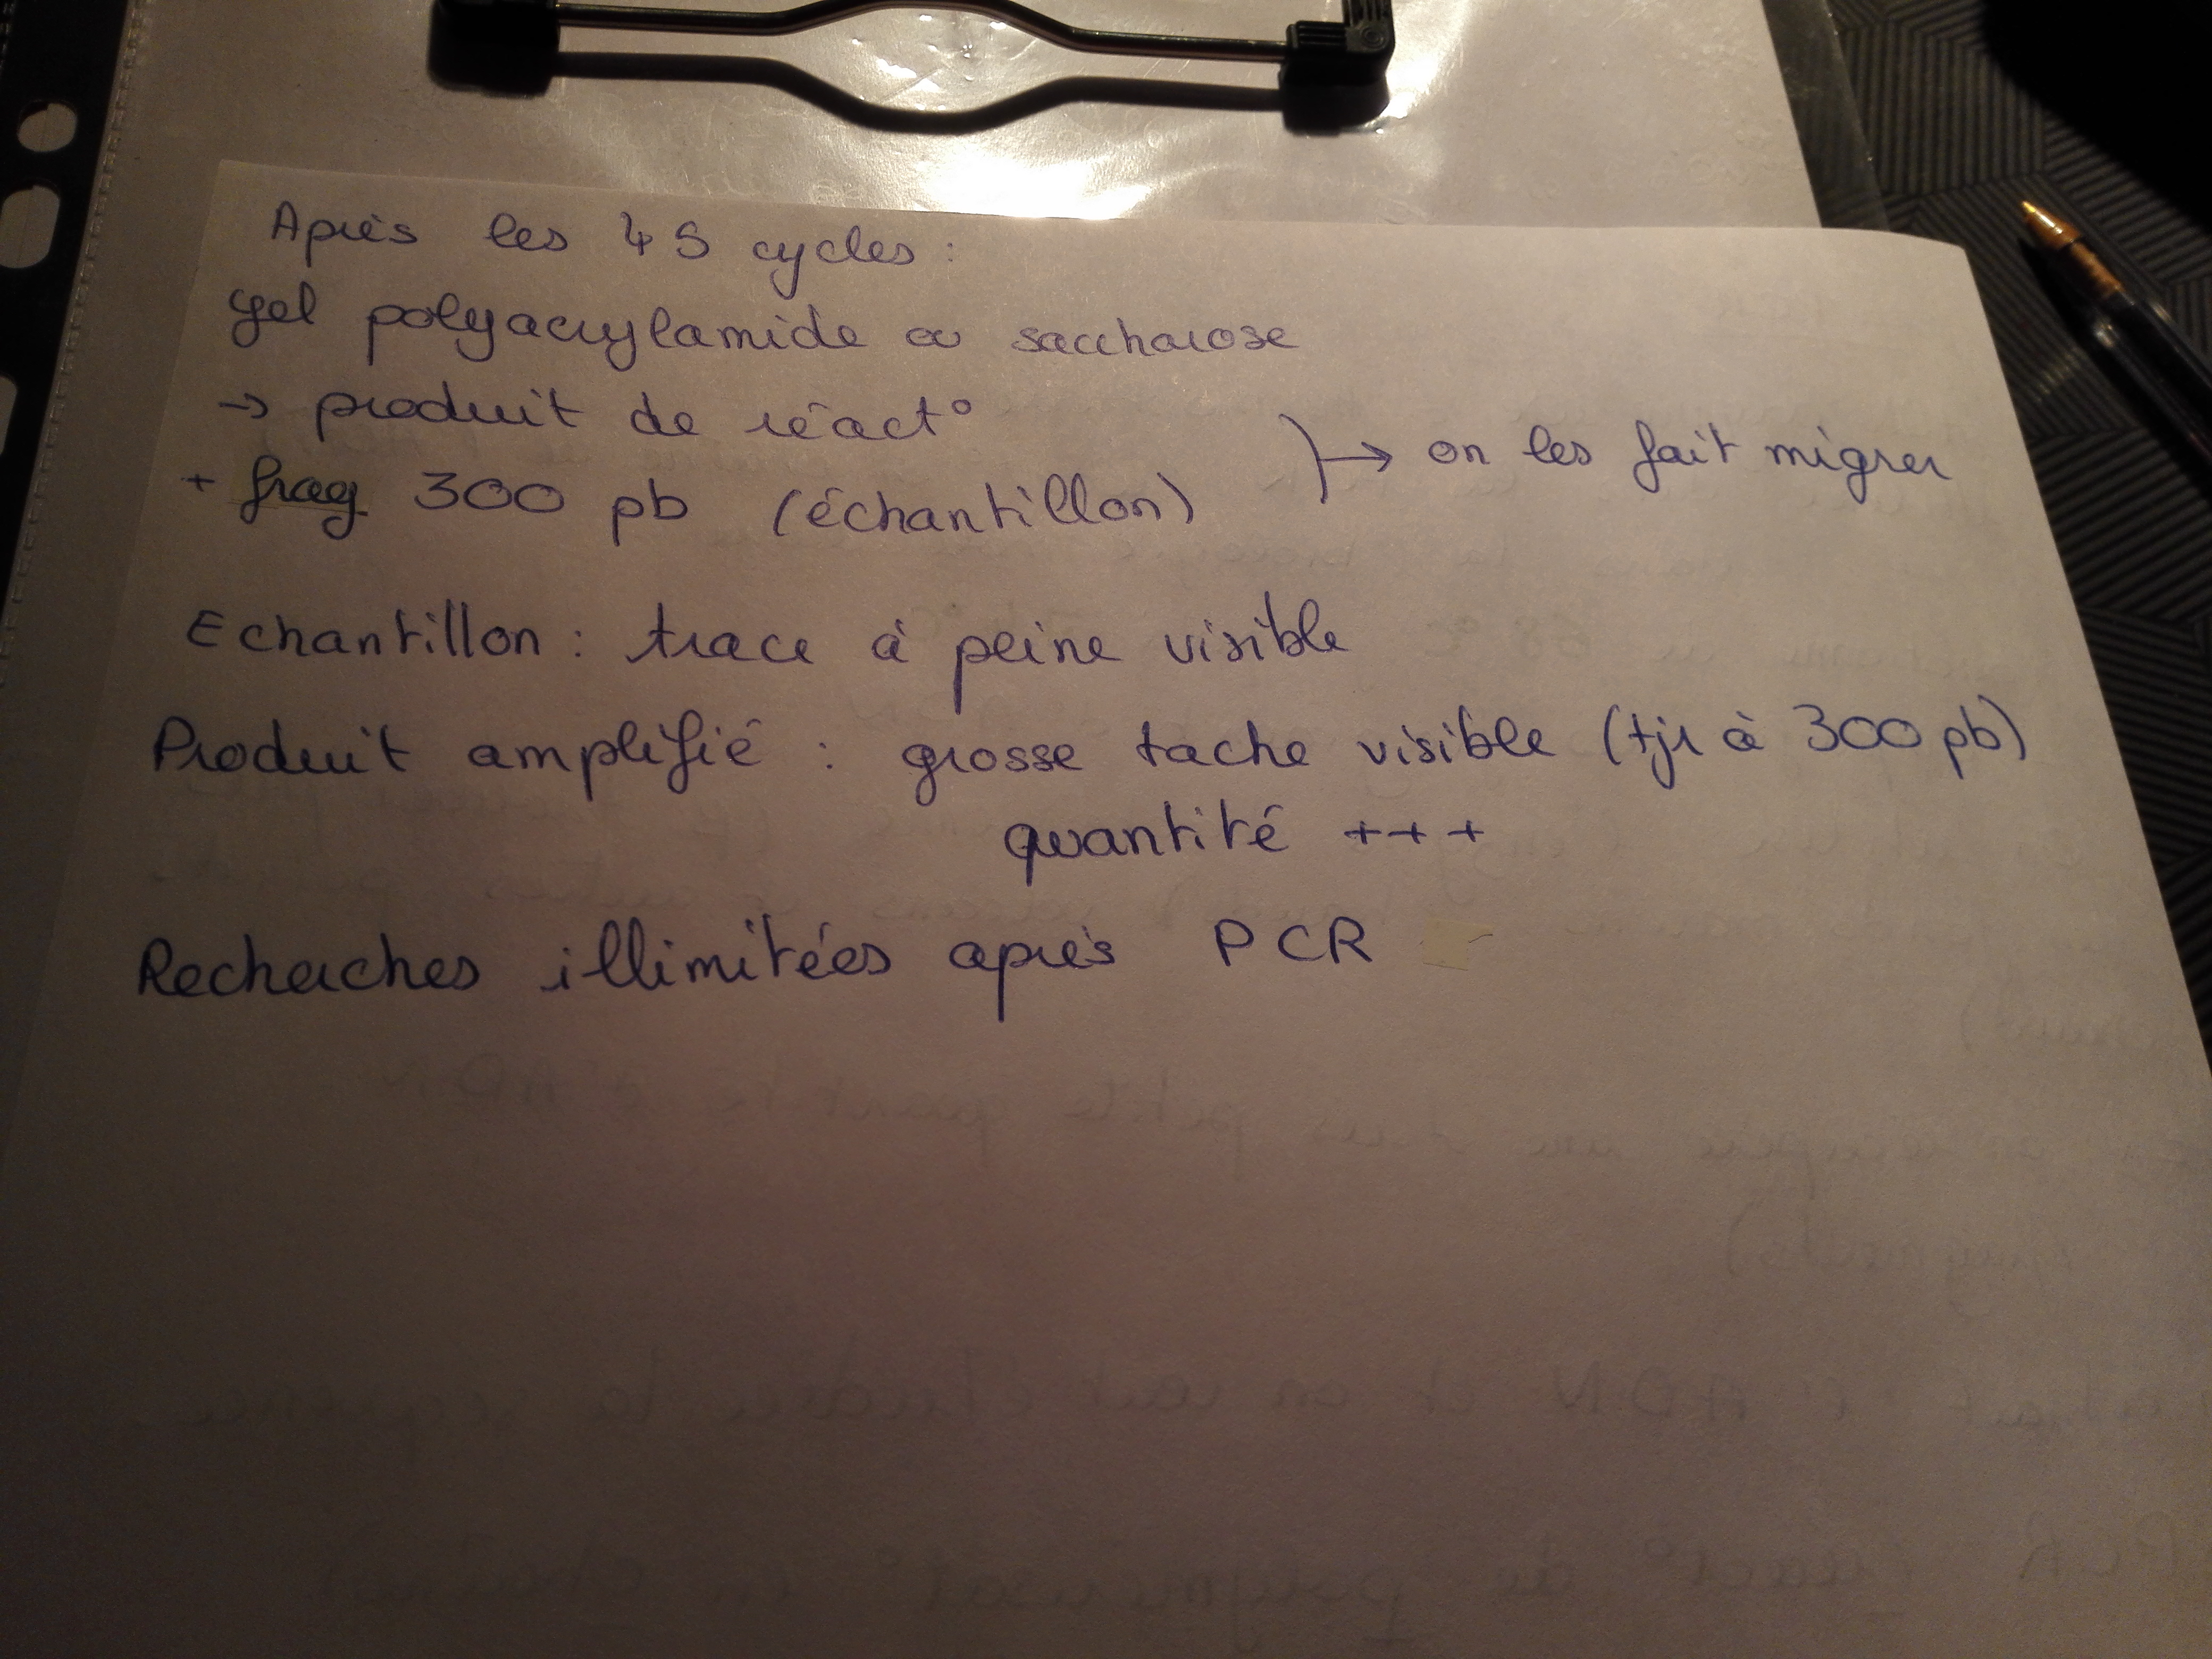 Après les 45 cycles :
gel polyacrylamide ou saccharose
→ produit de réact°
+ frag 300 pb (échantillon)
→ on les fait migrer
Echantillon : trace à peine visible
Produit amplifié : grosse tache visible (tjr à 300 pb)
quantité +++
Recherches illimitées après PCR